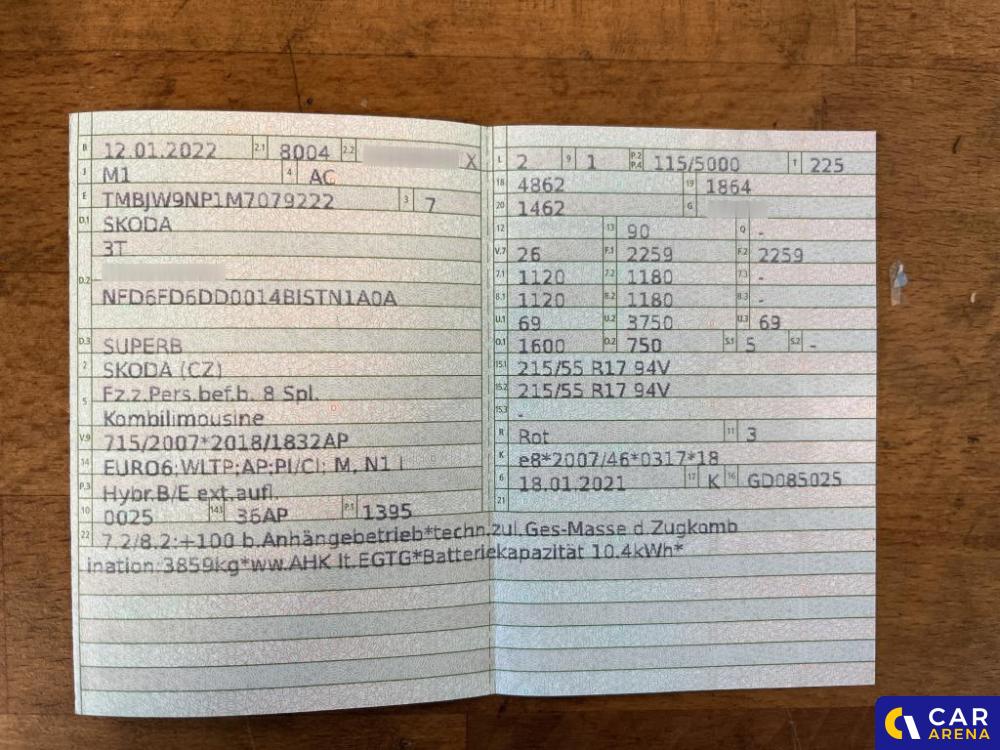 B 12.01.2022 2.1 8004 2.2 X
J M1 4 AC
E TMBJW9NP1M7079222 3 7
D.1 SKODA
3T
D.2
NFD6FD6DD0014BISTN1A0A
D.3 SUPERB
2 SKODA (CZ)
5 Fz.z.Pers.bef.b. 8 Spl.
Kombilimousine
V.9 715/2007*2018/1832AP
14 EURO6;WLTP;AP;PI/CI; M, N1 I
P.3 Hybr.B/E ext.aufl.
10 0025 14.1 36AP P.1 1395
L 2 9 1 P.2 P.4 115/5000 T 225
18 4862 19 1864
20 1462 G
12 13 90 Q -
V.7 26 F.1 2259 F.2 2259
7.1 1120 7.2 1180 7.3 -
8.1 1120 8.2 1180 8.3 -
U.1 69 U.2 3750 U.3 69
O.1 1600 O.2 750 S.1 5 S.2 -
15.1 215/55 R17 94V
15.2 215/55 R17 94V
15.3 -
R Rot 11 3
K e8*2007/46*0317*18
6 18.01.2021 17 K 16 GD085025
21
22 7.2/8.2:+100 b.Anhängebetrieb*techn.zul.Ges-Masse d.Zugkomb
ination:3859kg*ww.AHK lt.EGTG*Batteriekapazität 10.4kWh*
CAR
ARENA